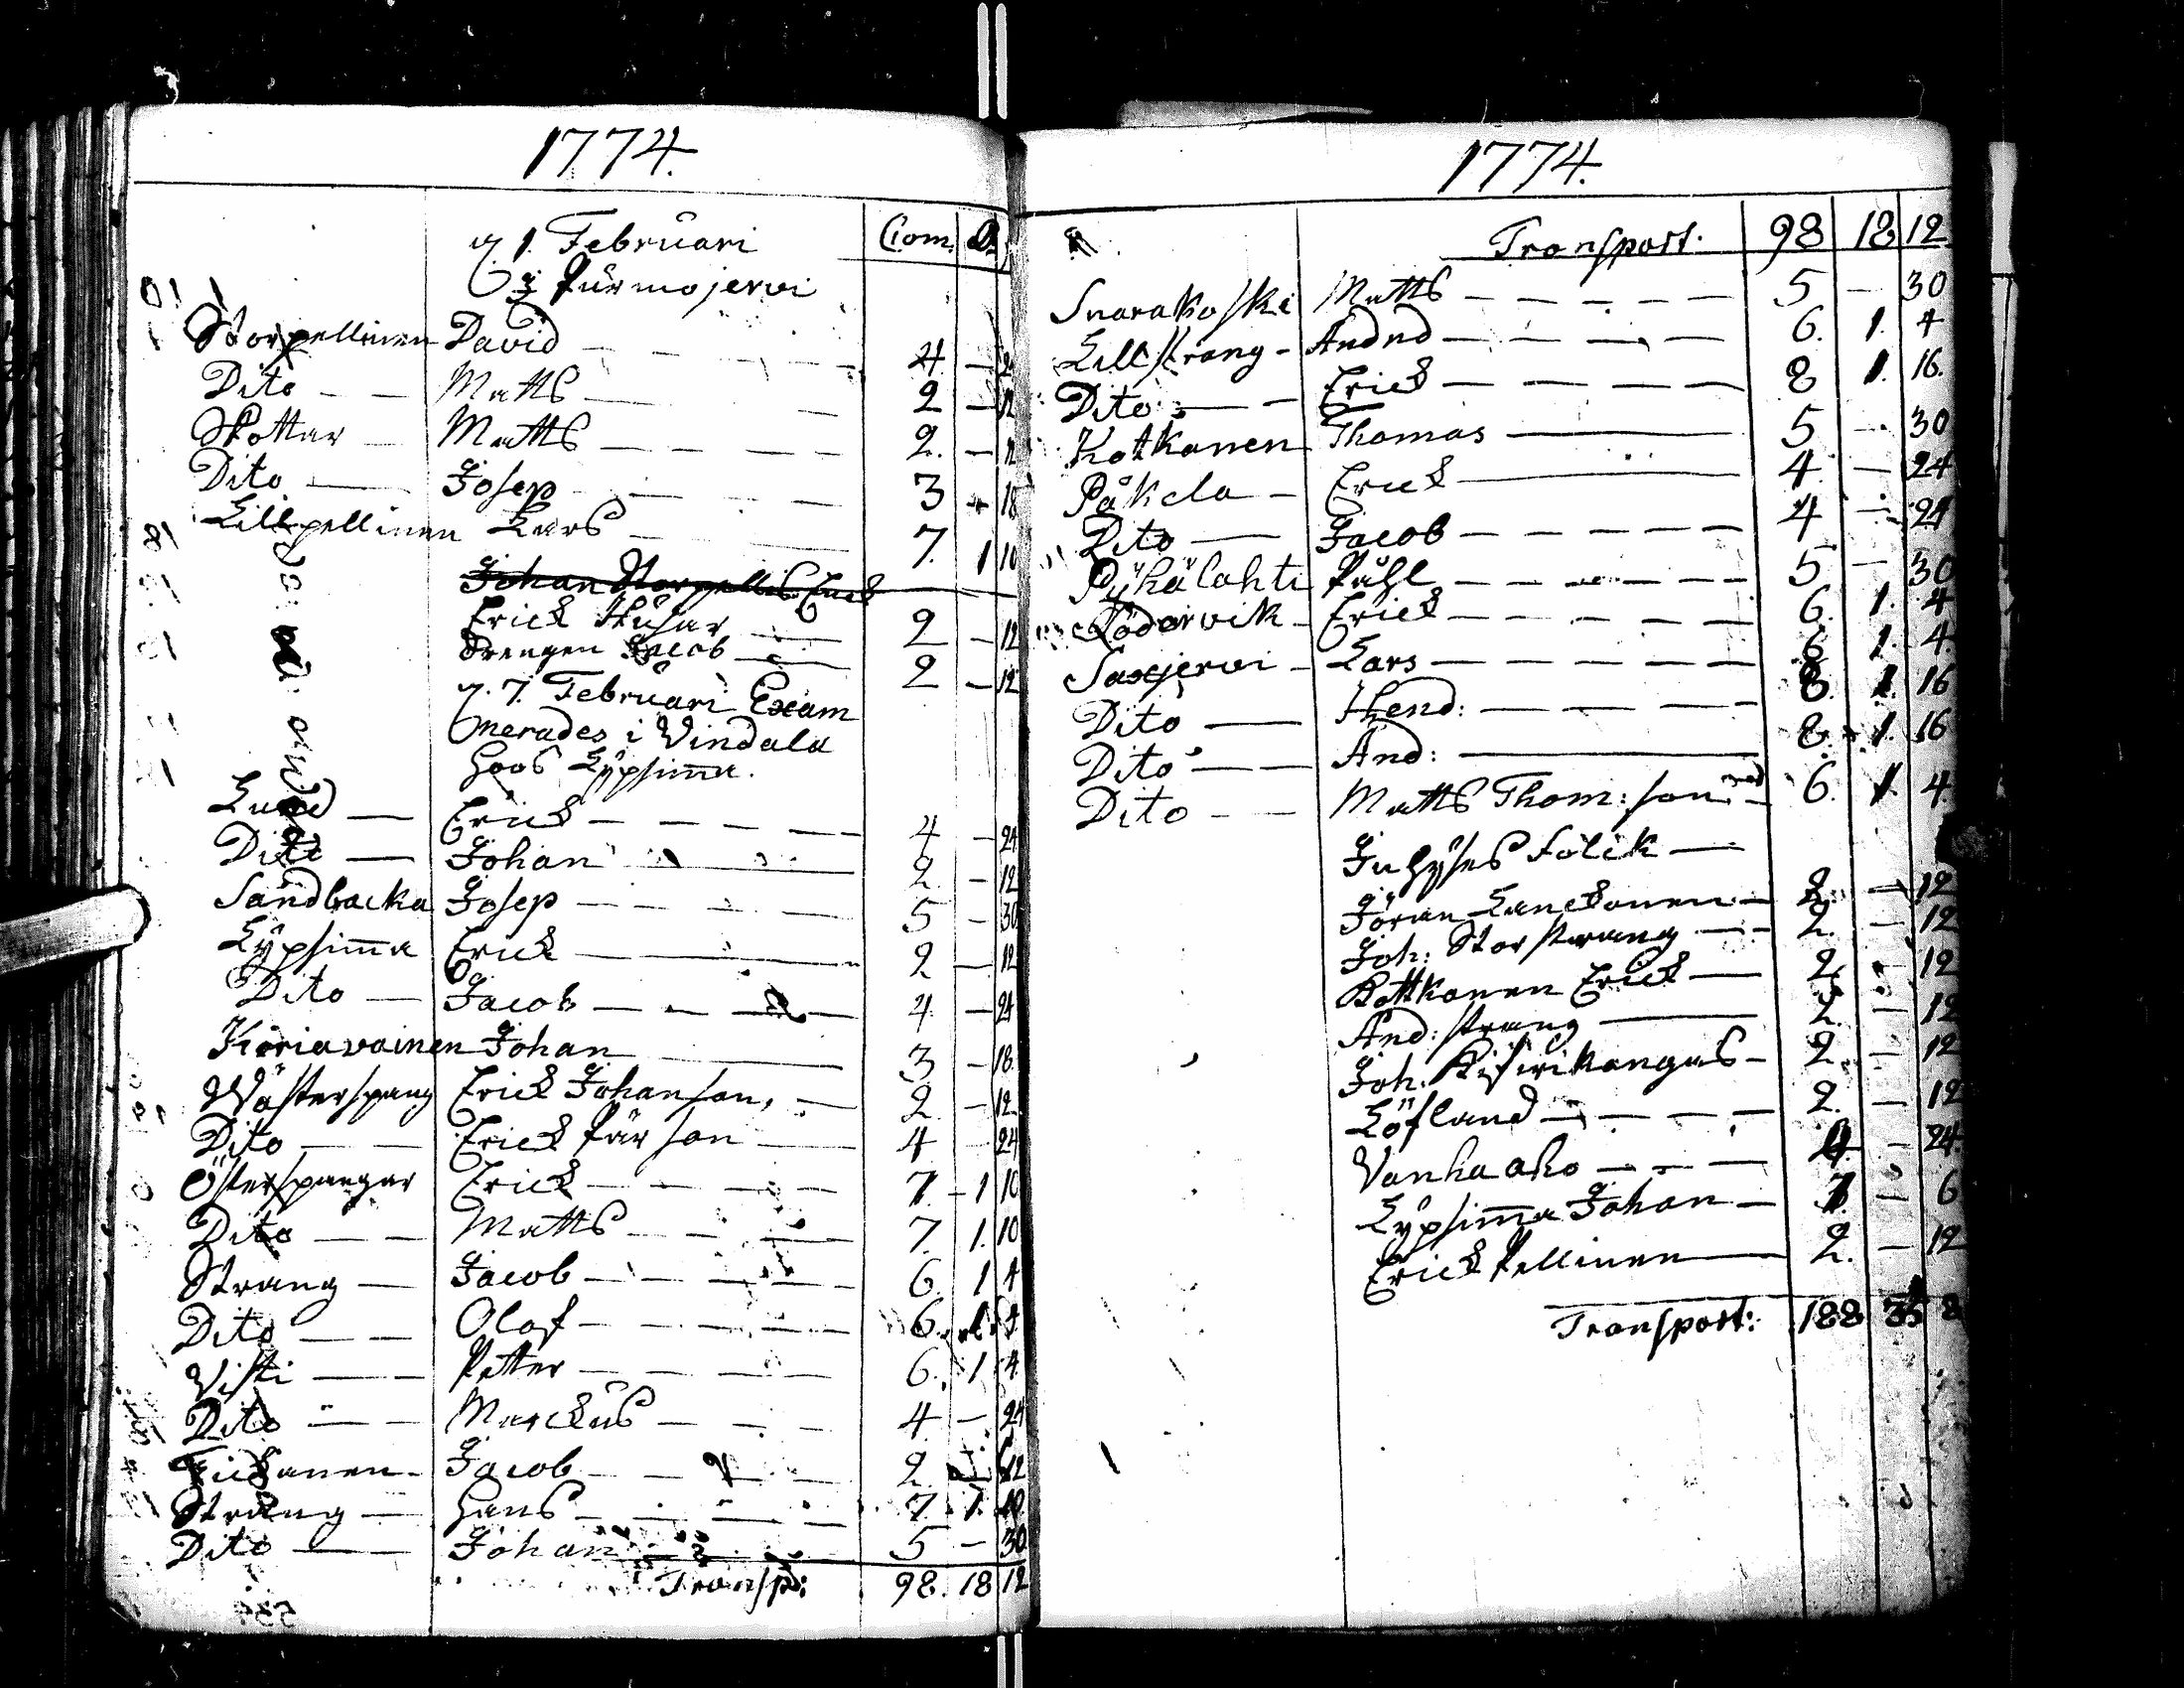 1774.
d. 1. Februari Com. D.
i Purmojervi
Storpellinen David 4 — 24
Dito Matts 2 — 12
Skottar Matts 2. — 12
Dito Josep 3 — 18
Lillpellinen Lars 7. 1 10
Johan Storpellin: Erick
Erick Husar 2 — 12
Drengen Jacob 2 — 12
d. 7. Februari Exam
inerades i Vindala
hoos Lypsima.
Lund Erick 4 — 24
Dito Johan 2 — 12
Sandbacka Josep 5 — 30
Lypsima Erick 2 — 12
Dito Jacob 4 — 24
Koriavainen Johan 3 — 18
Wästerspang Erick Johanson, 2 — 12
Dito Erick Pärson 4 24
Österspangar Erick 7 1 10
Dito Matts 7. 1. 10
Strang Jacob 6 1 4
Dito Olof 6. 1 4
Visti Petter 6. 1 4
Dito Marckus 4 — 24
Fickanen Jacob 2 — 12
Strang Hans 7 1. 10
Dito Johan 5 — 30
Transp: 98. 18 12
1774.
Transport. 98 18 12
Snarakoski Matts 5 — 30
Lillstrang Andrs 6. 1. 4
Dito Erick 8 1. 16.
Kotkanen Thomas 5 — 30
Påkela Erick 4 — 24
Dito Jacob 4 — 24
Pyhälahti Påhl 5 — 30
Södervik Erick 6. 1. 4
Saxjervi Lars 6 1. 4.
Dito Hend: 8. 1. 16
Dito And: 8. 1. 16
Dito Matts Thom: son 6. 1. 4
Inhyses folck
Jöran Lanckonen 2. — 12
Joh: Storstrang 2. — 12
Kottkanen Erick 2. — 12
And: strang 2. — 12
Joh. Kisurikangas 2. — 12
Löfland 2. — 12
Vanhaaho 4. — 24.
Lypsima Johan 1. — 6
Erick Pellinen 2. — 12
Transport: 188 35 8